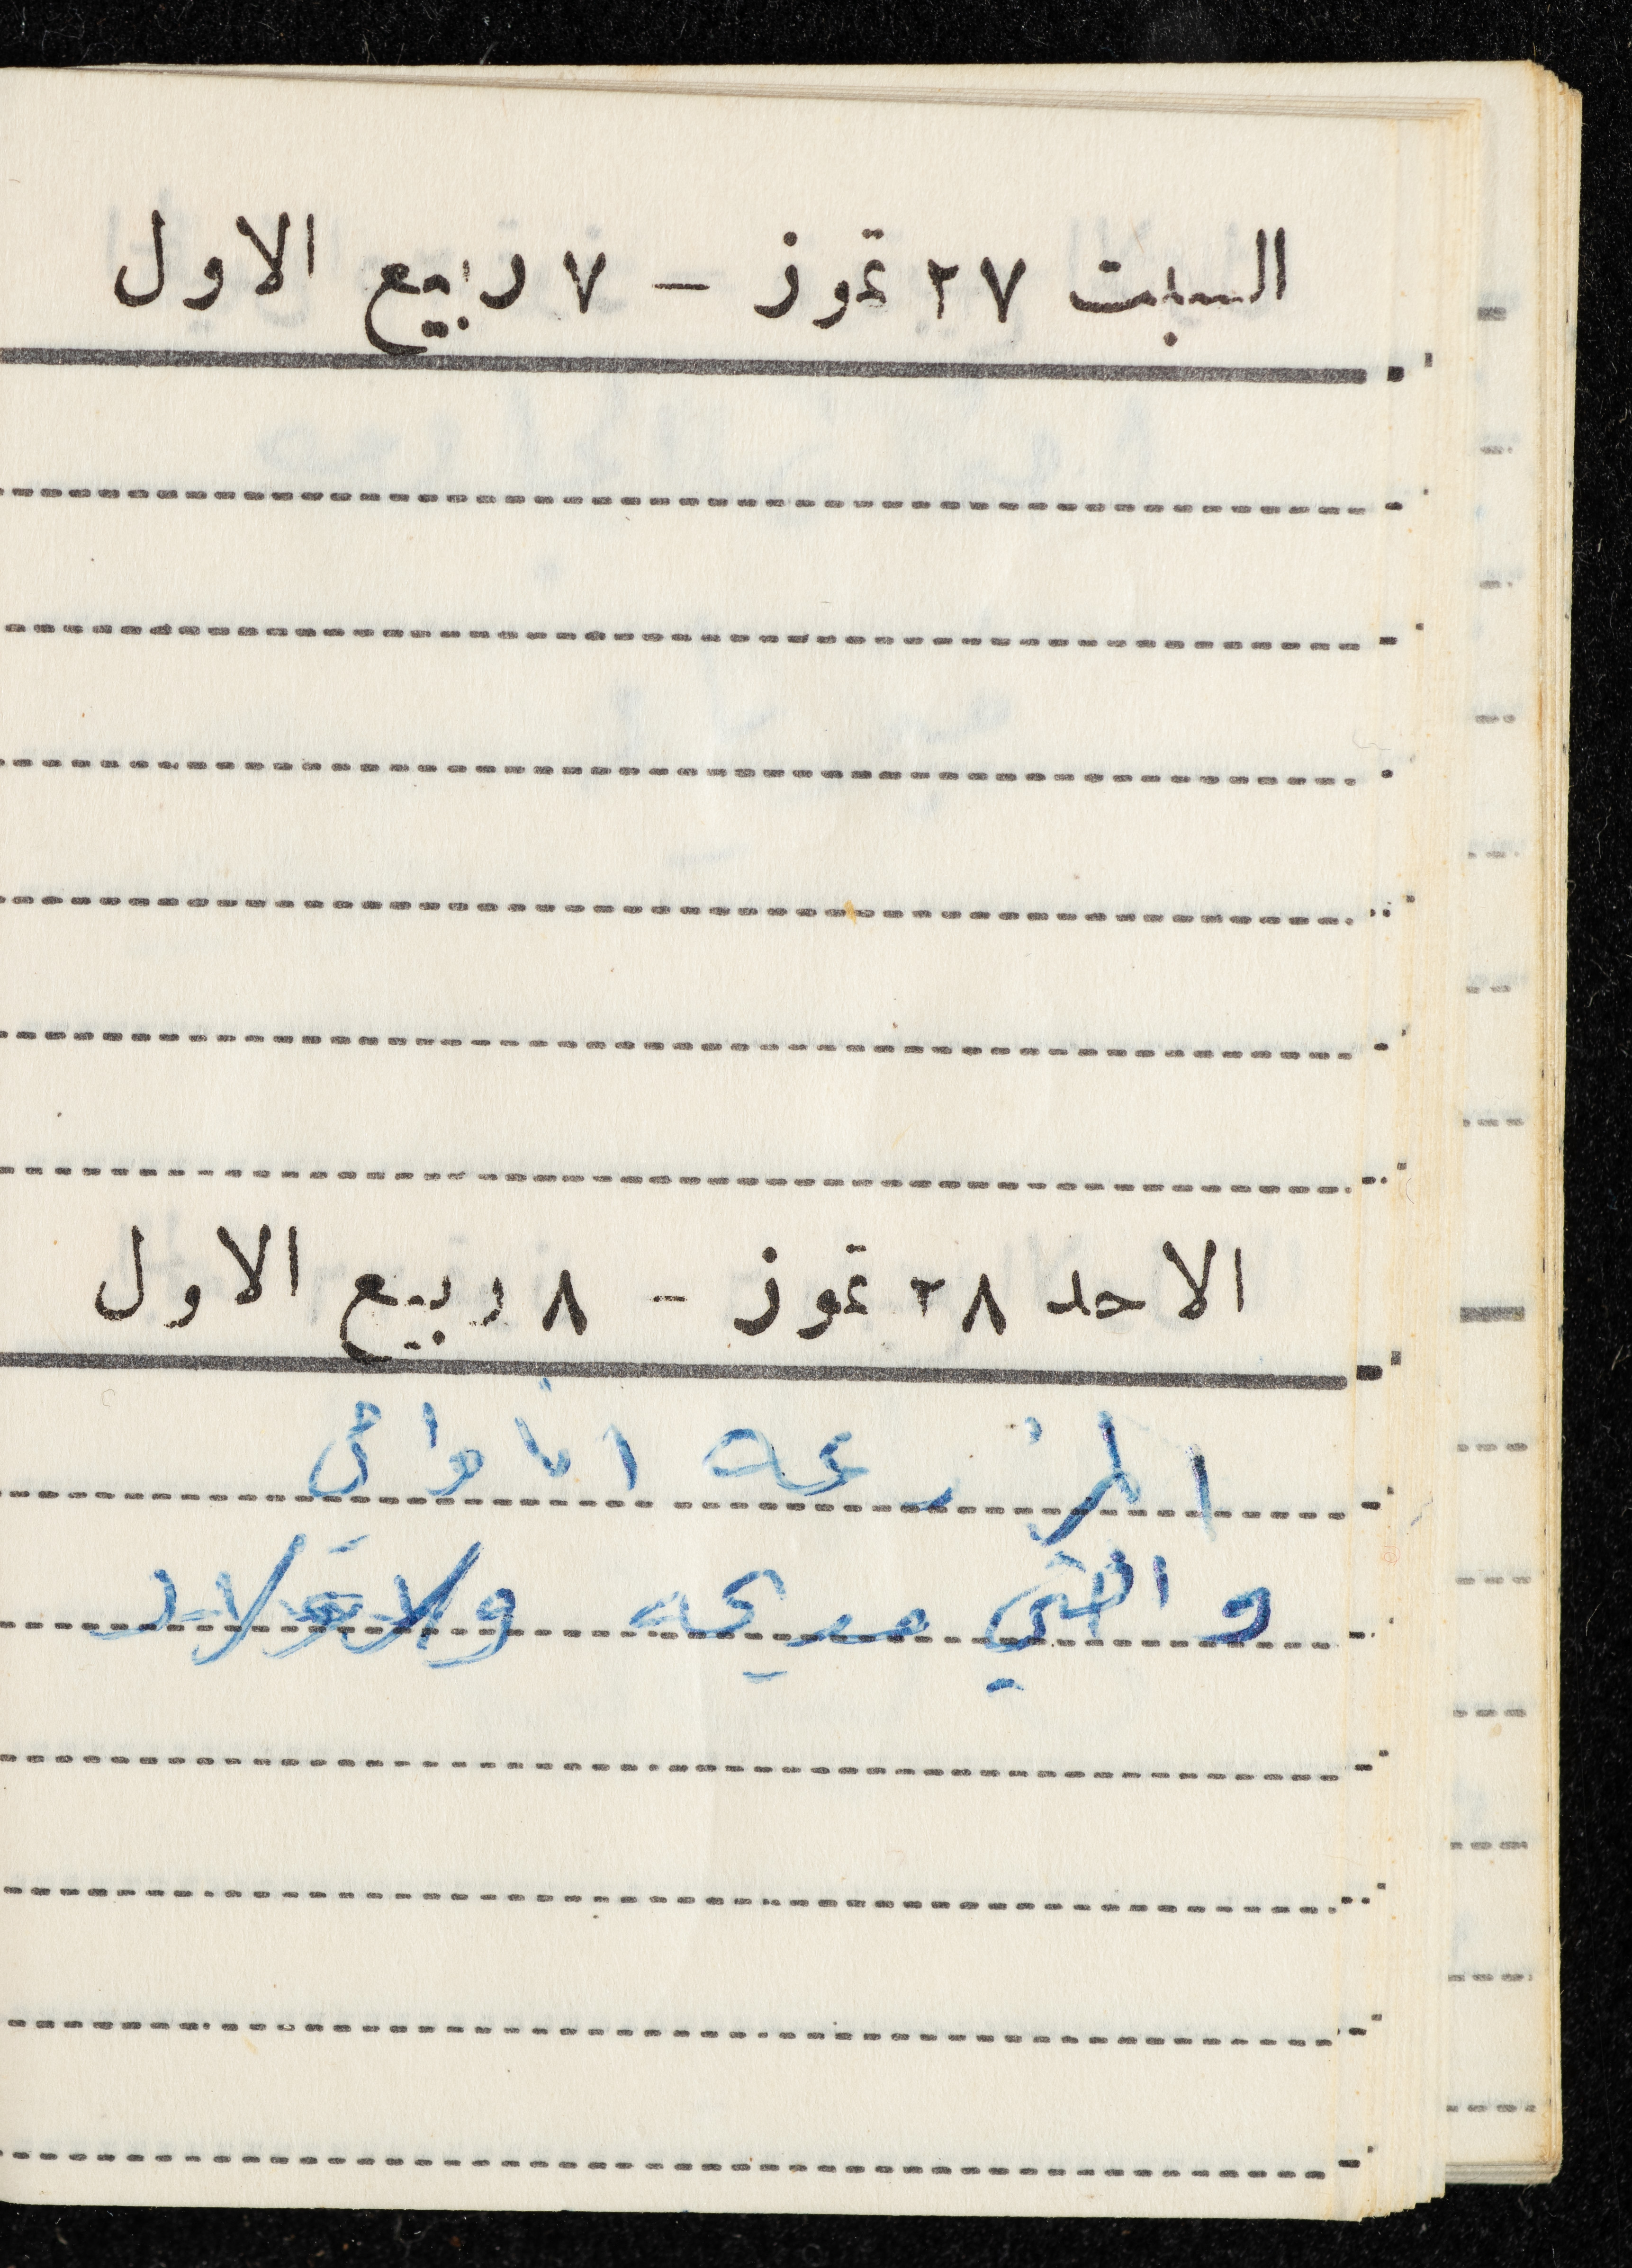 السبت ٢٧ تموز - ٧ ربيع الاول
الاحد ٢٨ تموز - ٨ ربيع الاول
المزرعه انا وا
واختي مديحه والاولاد